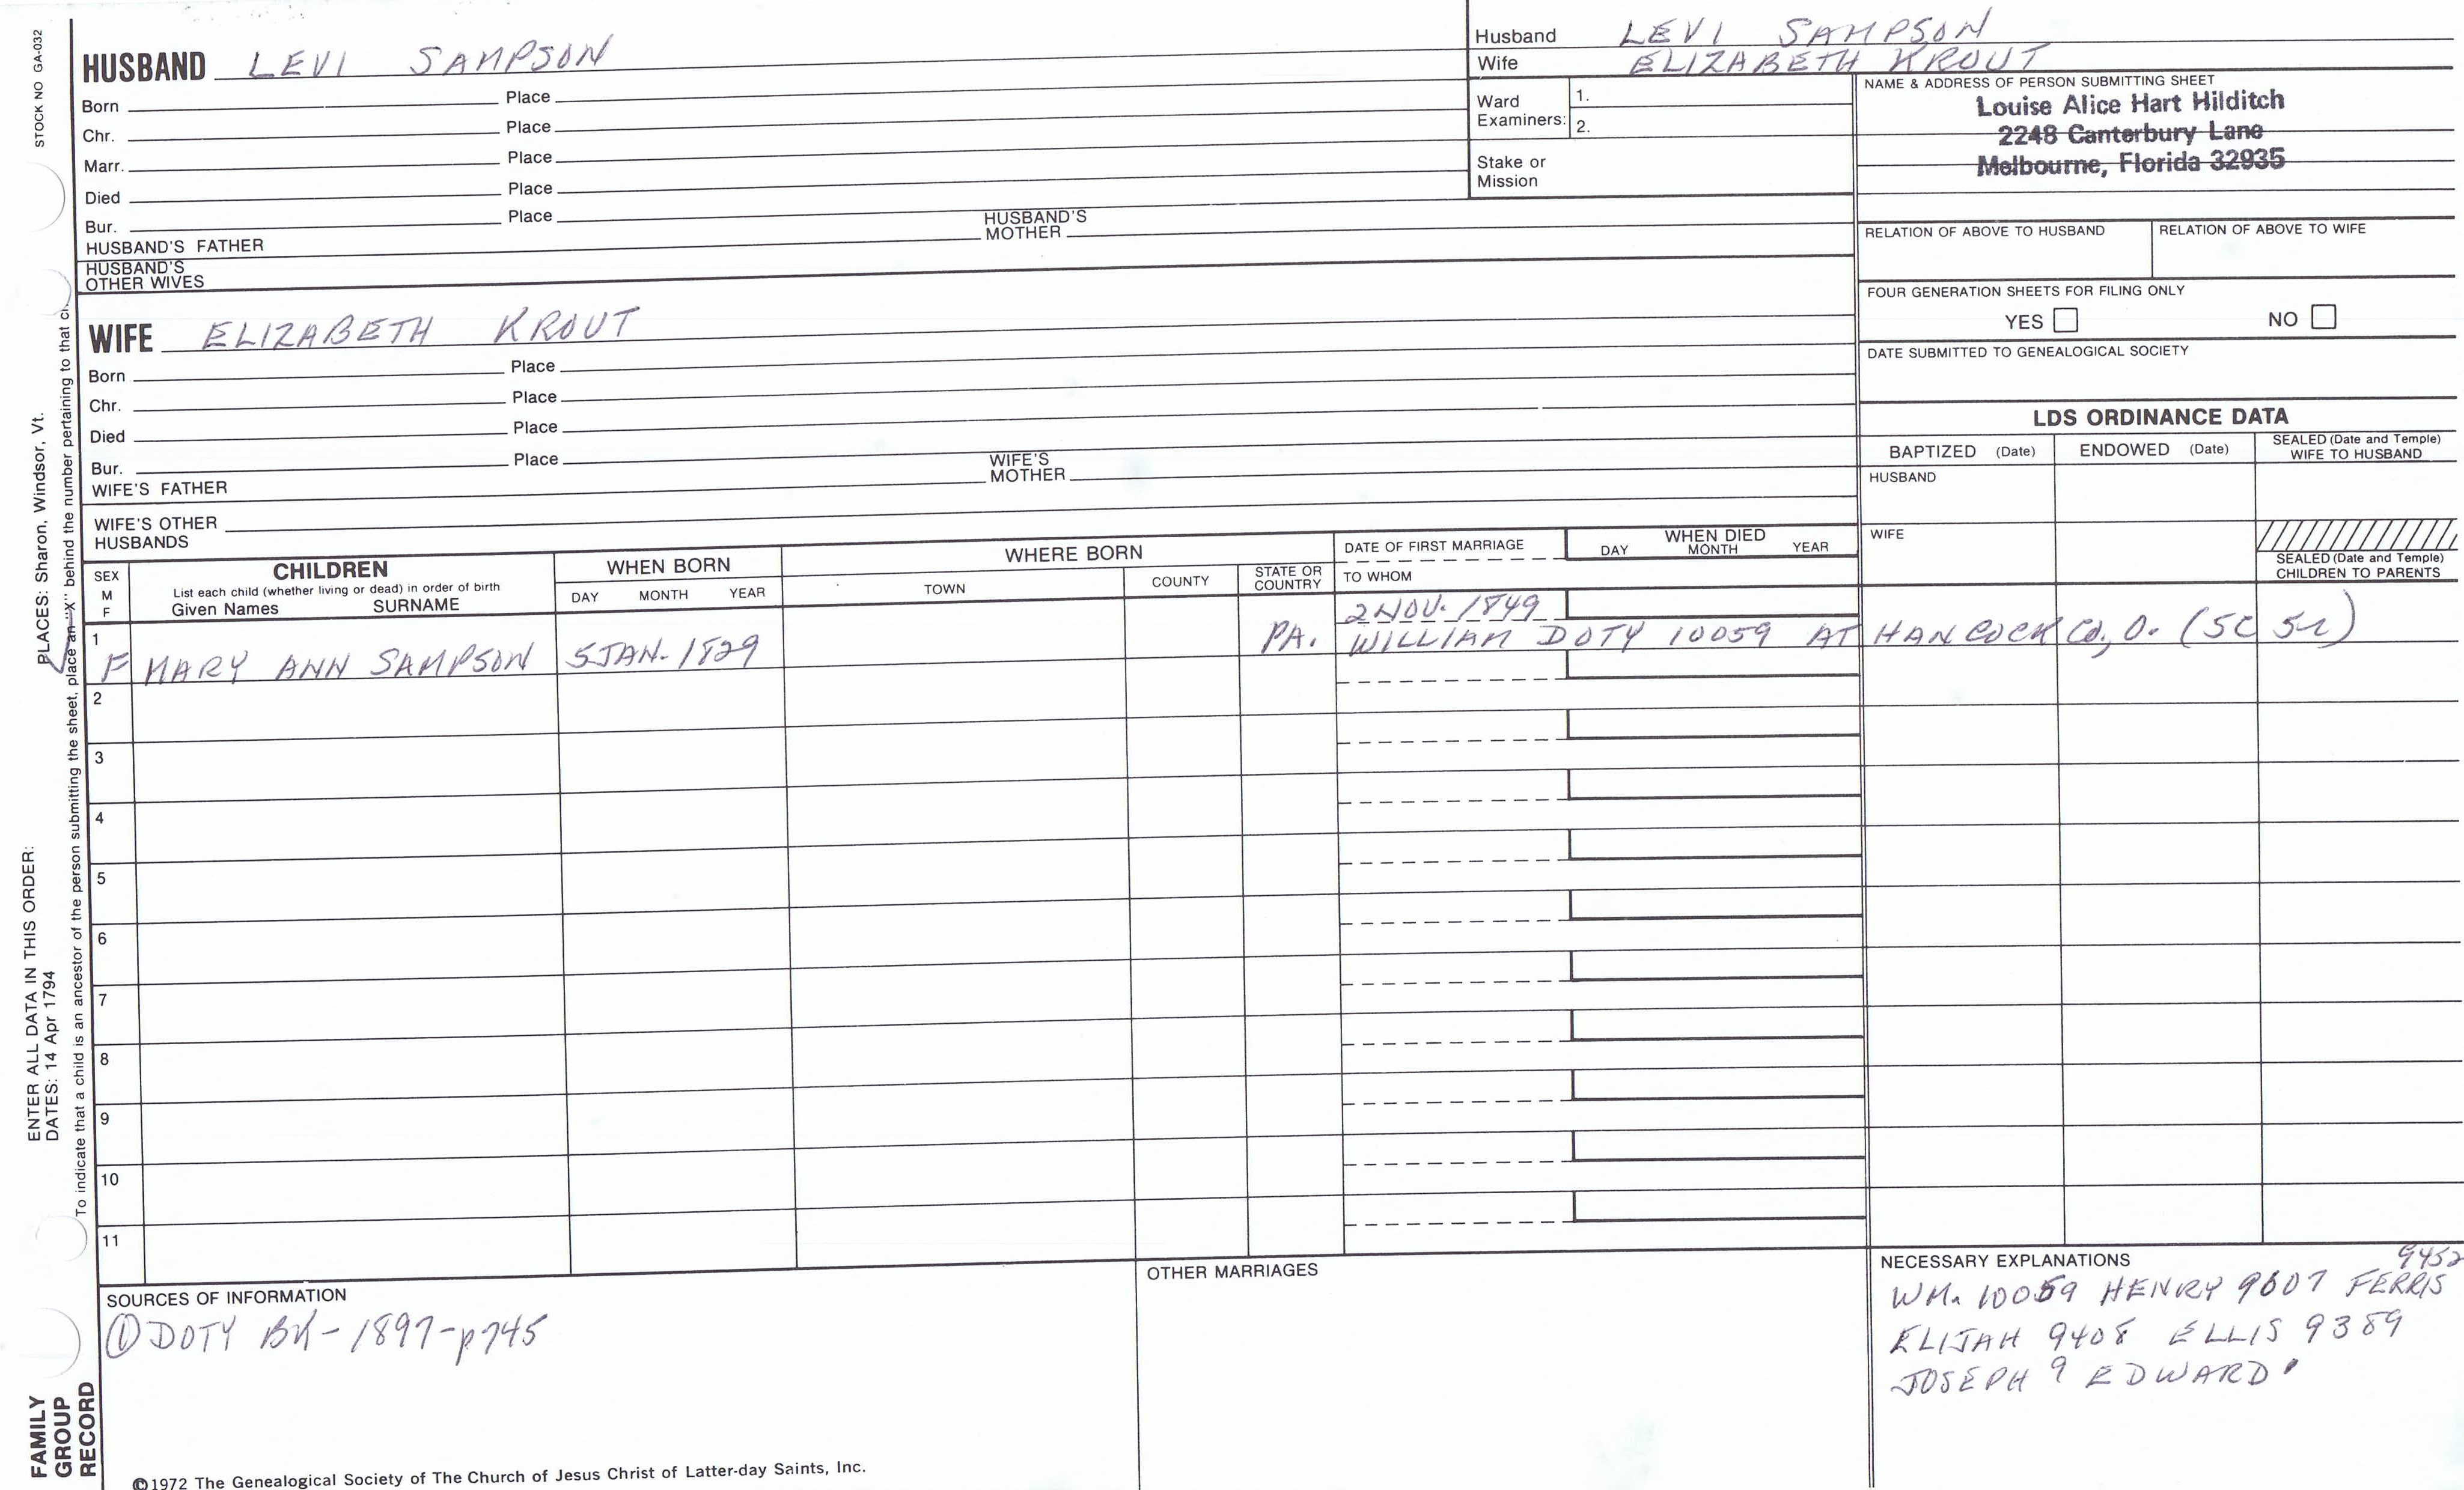 STOCK NO GA-032
HUSBAND LEVI SAMPSON
Born Place
Chr. Place
Marr. Place
Died Place
Bur. Place
HUSBAND'S FATHER
HUSBAND'S MOTHER
HUSBAND'S OTHER WIVES
WIFE ELIZABETH KROUT
Born Place
Chr. Place
Died Place
Bur. Place
WIFE'S FATHER
WIFE'S MOTHER
WIFE'S OTHER HUSBANDS
Husband LEVI SAMPSON
Wife ELIZABETH KROUT
Ward Examiners: 1.
2.
Stake or Mission
NAME & ADDRESS OF PERSON SUBMITTING SHEET
Louise Alice Hart Hilditch
2248 Canterbury Lane
Melbourne, Florida 32935
RELATION OF ABOVE TO HUSBAND
RELATION OF ABOVE TO WIFE
FOUR GENERATION SHEETS FOR FILING ONLY
YES NO
DATE SUBMITTED TO GENEALOGICAL SOCIETY
LDS ORDINANCE DATA
BAPTIZED (Date) ENDOWED (Date) SEALED (Date and Temple) WIFE TO HUSBAND
HUSBAND
WIFE
SEALED (Date and Temple) CHILDREN TO PARENTS
SEX M F
CHILDREN
List each child (whether living or dead) in order of birth
Given Names SURNAME
WHEN BORN
DAY MONTH YEAR
WHERE BORN
TOWN COUNTY STATE OR COUNTRY
DATE OF FIRST MARRIAGE
TO WHOM
WHEN DIED
DAY MONTH YEAR
2 NOV. 1849
1 F MARY ANN SAMPSON 5 JAN. 1829 PA. WILLIAM DOTY 10059 AT HANCOCK CO, O. (SC 52)
2
3
4
5
6
7
8
9
10
11
SOURCES OF INFORMATION
① DOTY BK - 1897 - p745
OTHER MARRIAGES
NECESSARY EXPLANATIONS
9452
WM. 10059 HENRY 9607 FERRIS
ELIJAH 9408 ELLIS 9389
JOSEPH 9 EDWARD 1
©1972 The Genealogical Society of The Church of Jesus Christ of Latter-day Saints, Inc.
FAMILY
GROUP
RECORD
ENTER ALL DATA IN THIS ORDER:
DATES: 14 Apr 1794
PLACES: Sharon, Windsor, Vt.
To indicate that a child is an ancestor of the person submitting the sheet, place an "X" behind the number pertaining to that